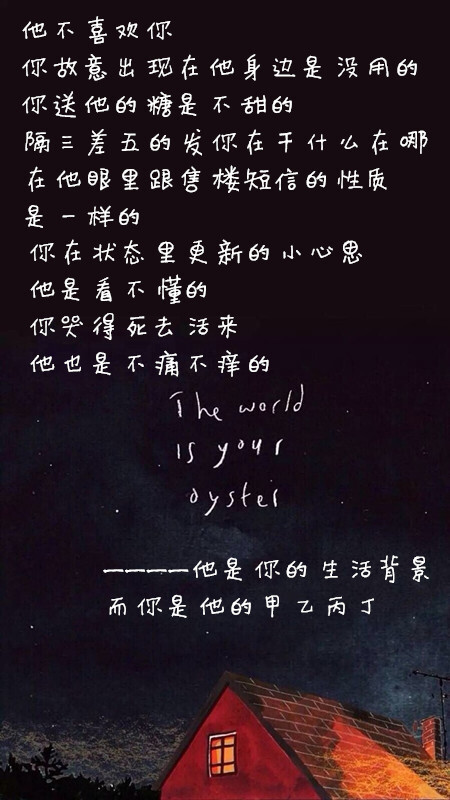 他不喜欢你
你故意出现在他身边是没用的
你送他的糖是不甜的
隔三差五的发你在干什么在哪
在他眼里跟售楼短信的性质
是一样的
你在状态里更新的小心思
他是看不懂的
你哭得死去活来
他也是不痛不痒的
The world
is your
oyster
————他是你的生活背景
而你是他的甲乙丙丁